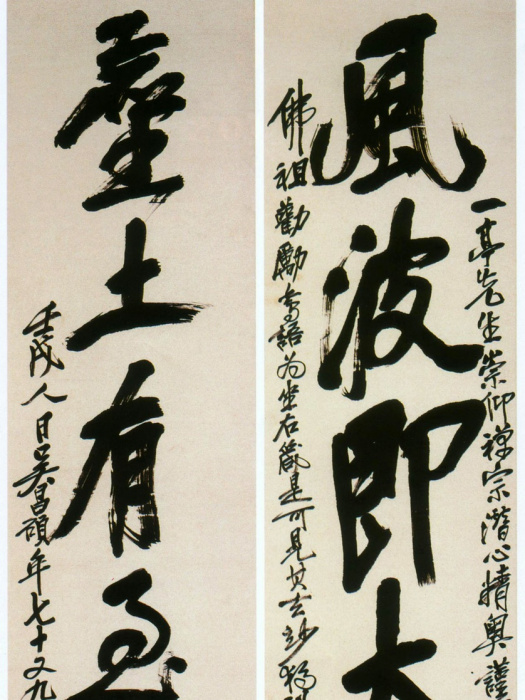 風波即大
一亭先生崇仰禅宗潛心精奥謹
佛祖勸勵書語为坐右箴是可見其玄
土有
壬戌人日吳昌碩年七十又九